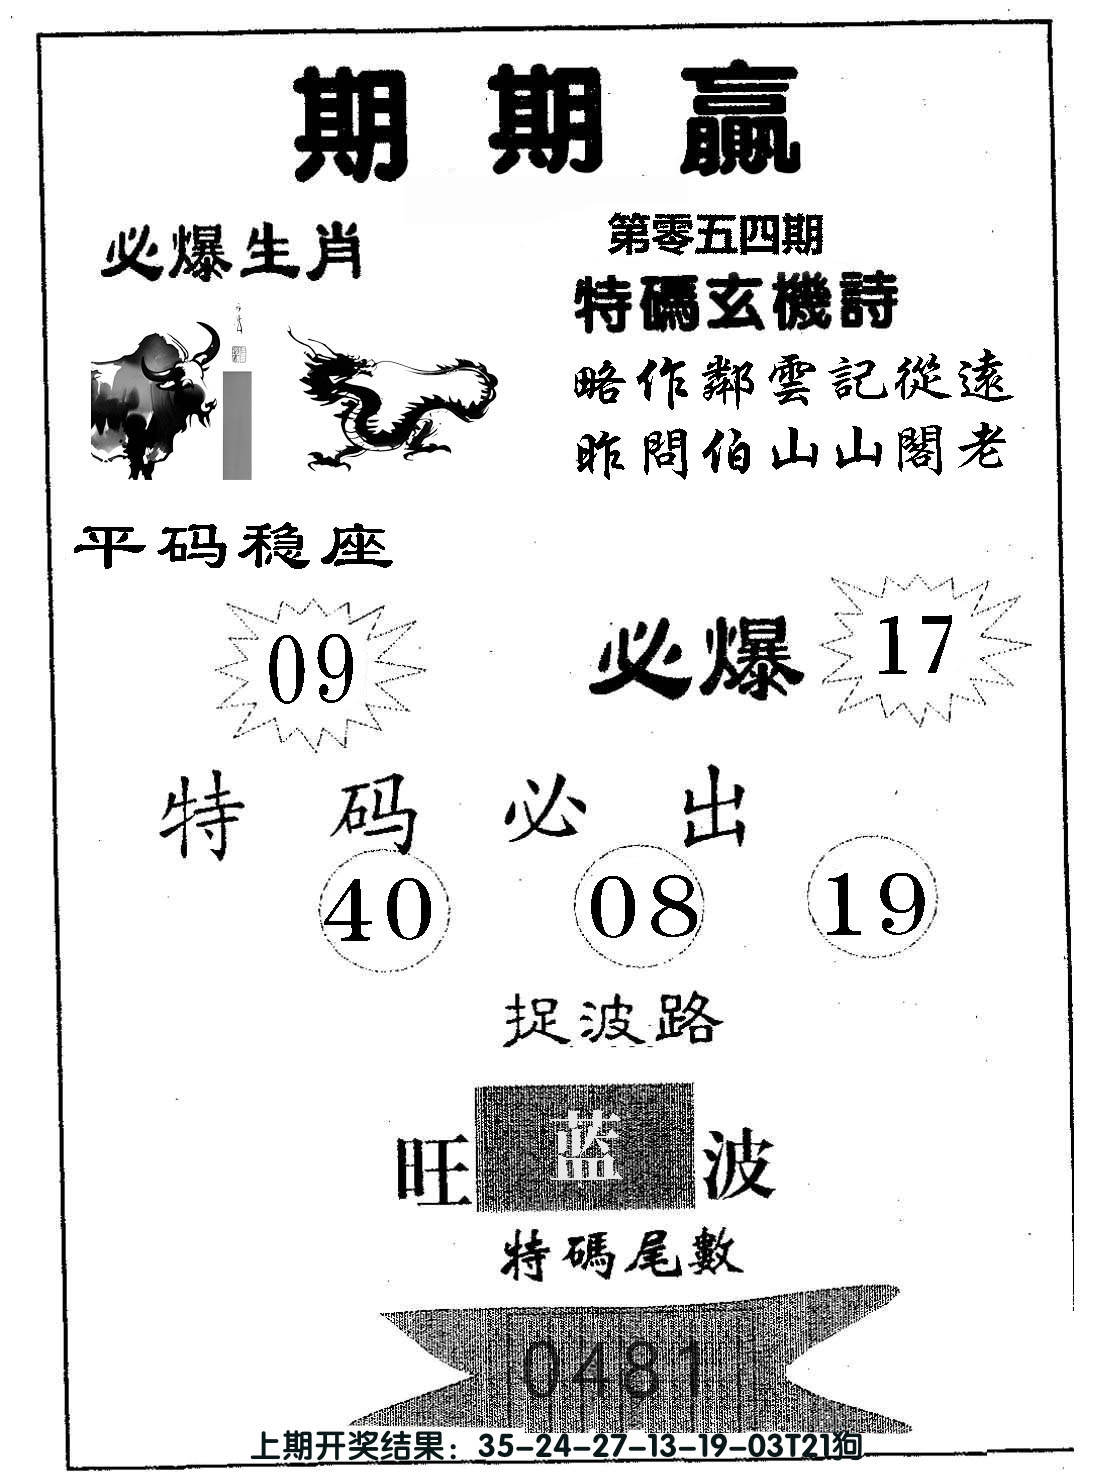 期期赢
必爆生肖
第零五四期
特碼玄機詩
略作鄰雲記從遠
昨問伯山山閣老
平码稳座
09
必爆 17
特码必出
40 08 19
捉波路
旺 蓝 波
特碼尾數
0481
上期开奖结果：35-24-27-13-19-03T21狗